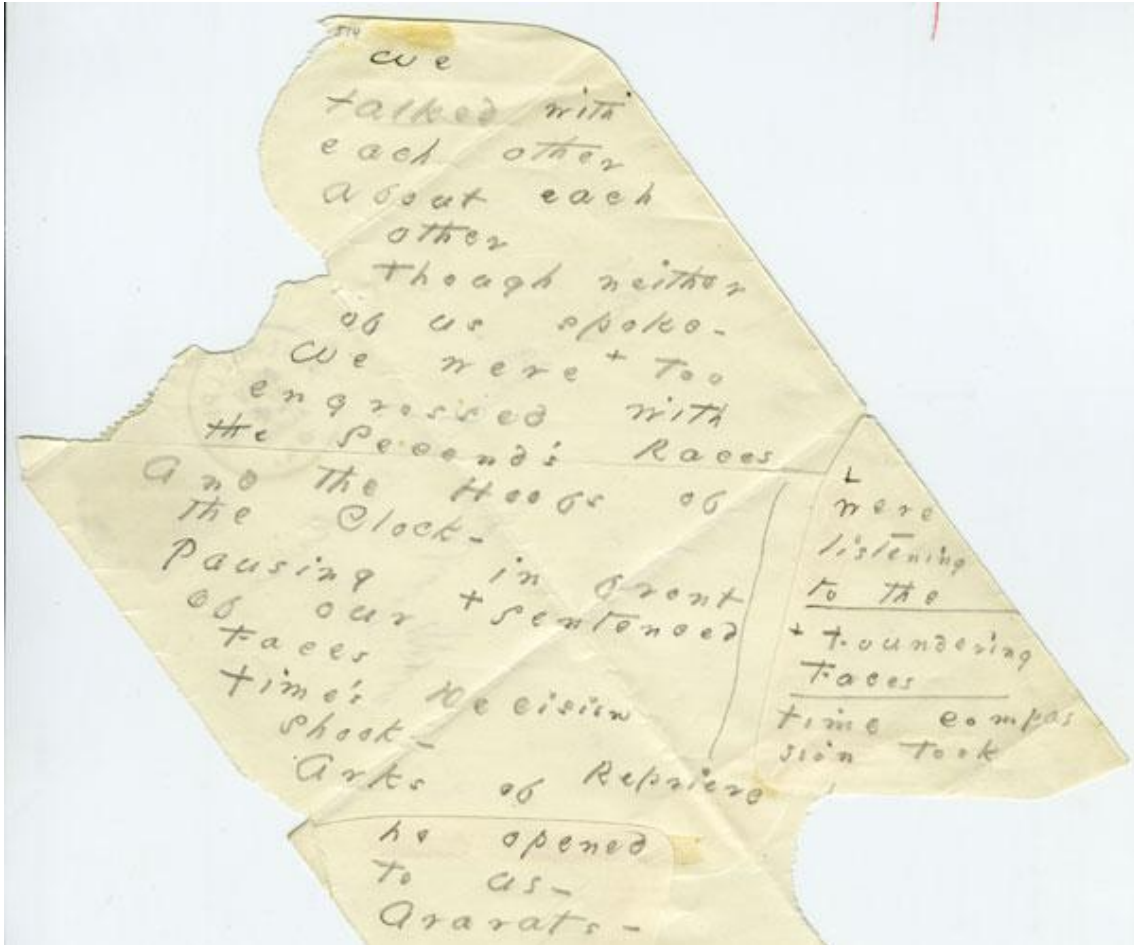 514
We
talked with
each other
about each
other
though neither
of us spoke-
We were + too
engrossed with
the Second's Races
And the Hoofs of
the Clock-
Pausing in front
of our + sentenced
Faces
time's Decision
shook-
Arks of Reprieve
he opened
to us-
Ararats-
+
were
listening
to the
+ Foundering
Faces
time compas
sion took